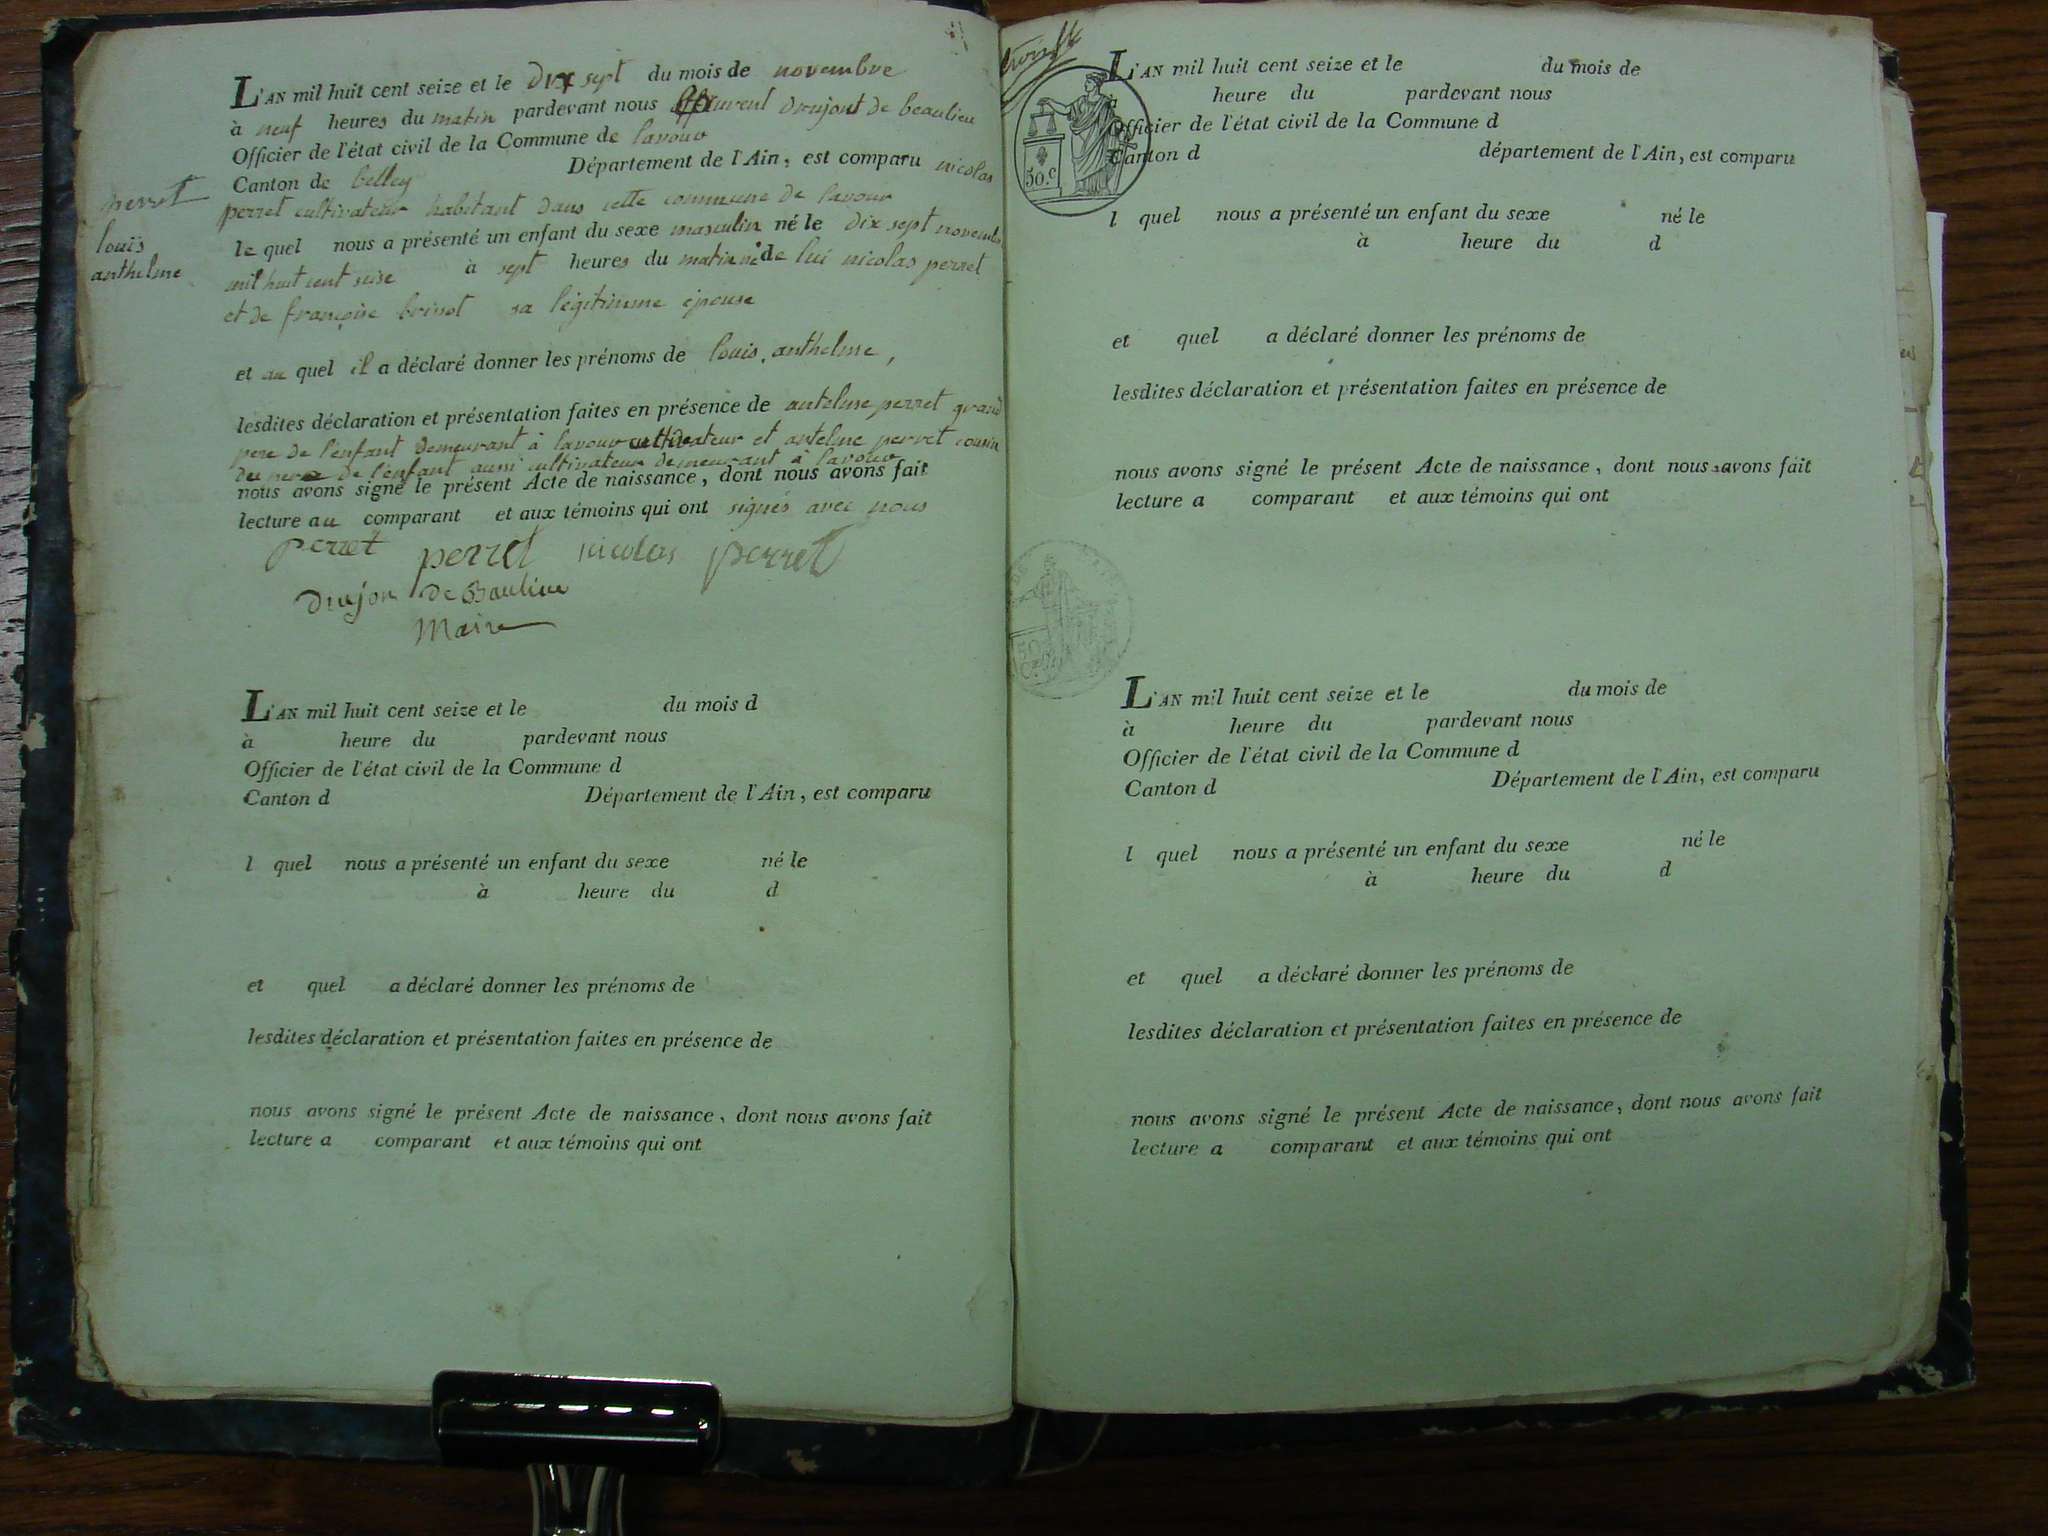 L'AN mil huit cent seize et le dix sept du mois de novembre
à neuf heures du matin pardevant nous drujont de beaulieu
Officier de l'état civil de la Commune de lavour
Canton de belley Département de l'Ain, est comparu nicolas
perret cultivateur habitant dans cette commune de lavour
le quel nous a présenté un enfant du sexe masculin né le dix sept novembre
mil huit cent seise à sept heures du matin né de lui nicolas perret
et de françoise brinot sa légitimme épouse
et au quel il a déclaré donner les prénoms de louis, anthelme,
lesdites déclaration et présentation faites en présence de antelme perret grand
pere de l'enfant demeurant à lavour cultivateur et antelme perret cousin
du pere de l'enfant aussi cultivateur demeurant à lavour
nous avons signé le présent Acte de naissance, dont nous avons fait
lecture au comparant et aux témoins qui ont signés avec nous
perret perret nicolas perret
drujon de Baulieu
Maire
perret
louis
anthelme
L'AN mil huit cent seize et le du mois d
à heure du pardevant nous
Officier de l'état civil de la Commune d
Canton d Département de l'Ain, est comparu
l quel nous a présenté un enfant du sexe né le
à heure du d
et quel a déclaré donner les prénoms de
lesdites déclaration et présentation faites en présence de
nous avons signé le présent Acte de naissance, dont nous avons fait
lecture a comparant et aux témoins qui ont
50.c
L'AN mil huit cent seize et le du mois de
à heure du pardevant nous
Officier de l'état civil de la Commune d
Canton d département de l'Ain, est comparu
l quel nous a présenté un enfant du sexe né le
à heure du d
et quel a déclaré donner les prénoms de
lesdites déclaration et présentation faites en présence de
nous avons signé le présent Acte de naissance, dont nous avons fait
lecture a comparant et aux témoins qui ont
L'AN mil huit cent seize et le du mois de
à heure du pardevant nous
Officier de l'état civil de la Commune d
Canton d Département de l'Ain, est comparu
l quel nous a présenté un enfant du sexe né le
à heure du d
et quel a déclaré donner les prénoms de
lesdites déclaration et présentation faites en présence de
nous avons signé le présent Acte de naissance, dont nous avons fait
lecture a comparant et aux témoins qui ont